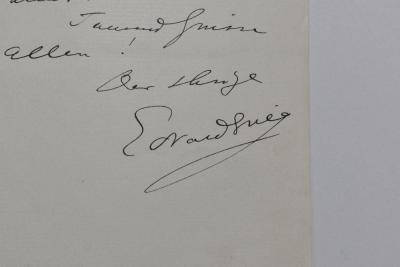 Tausend Grüsse
Allen!
Der Ihrige
Edvard Grieg